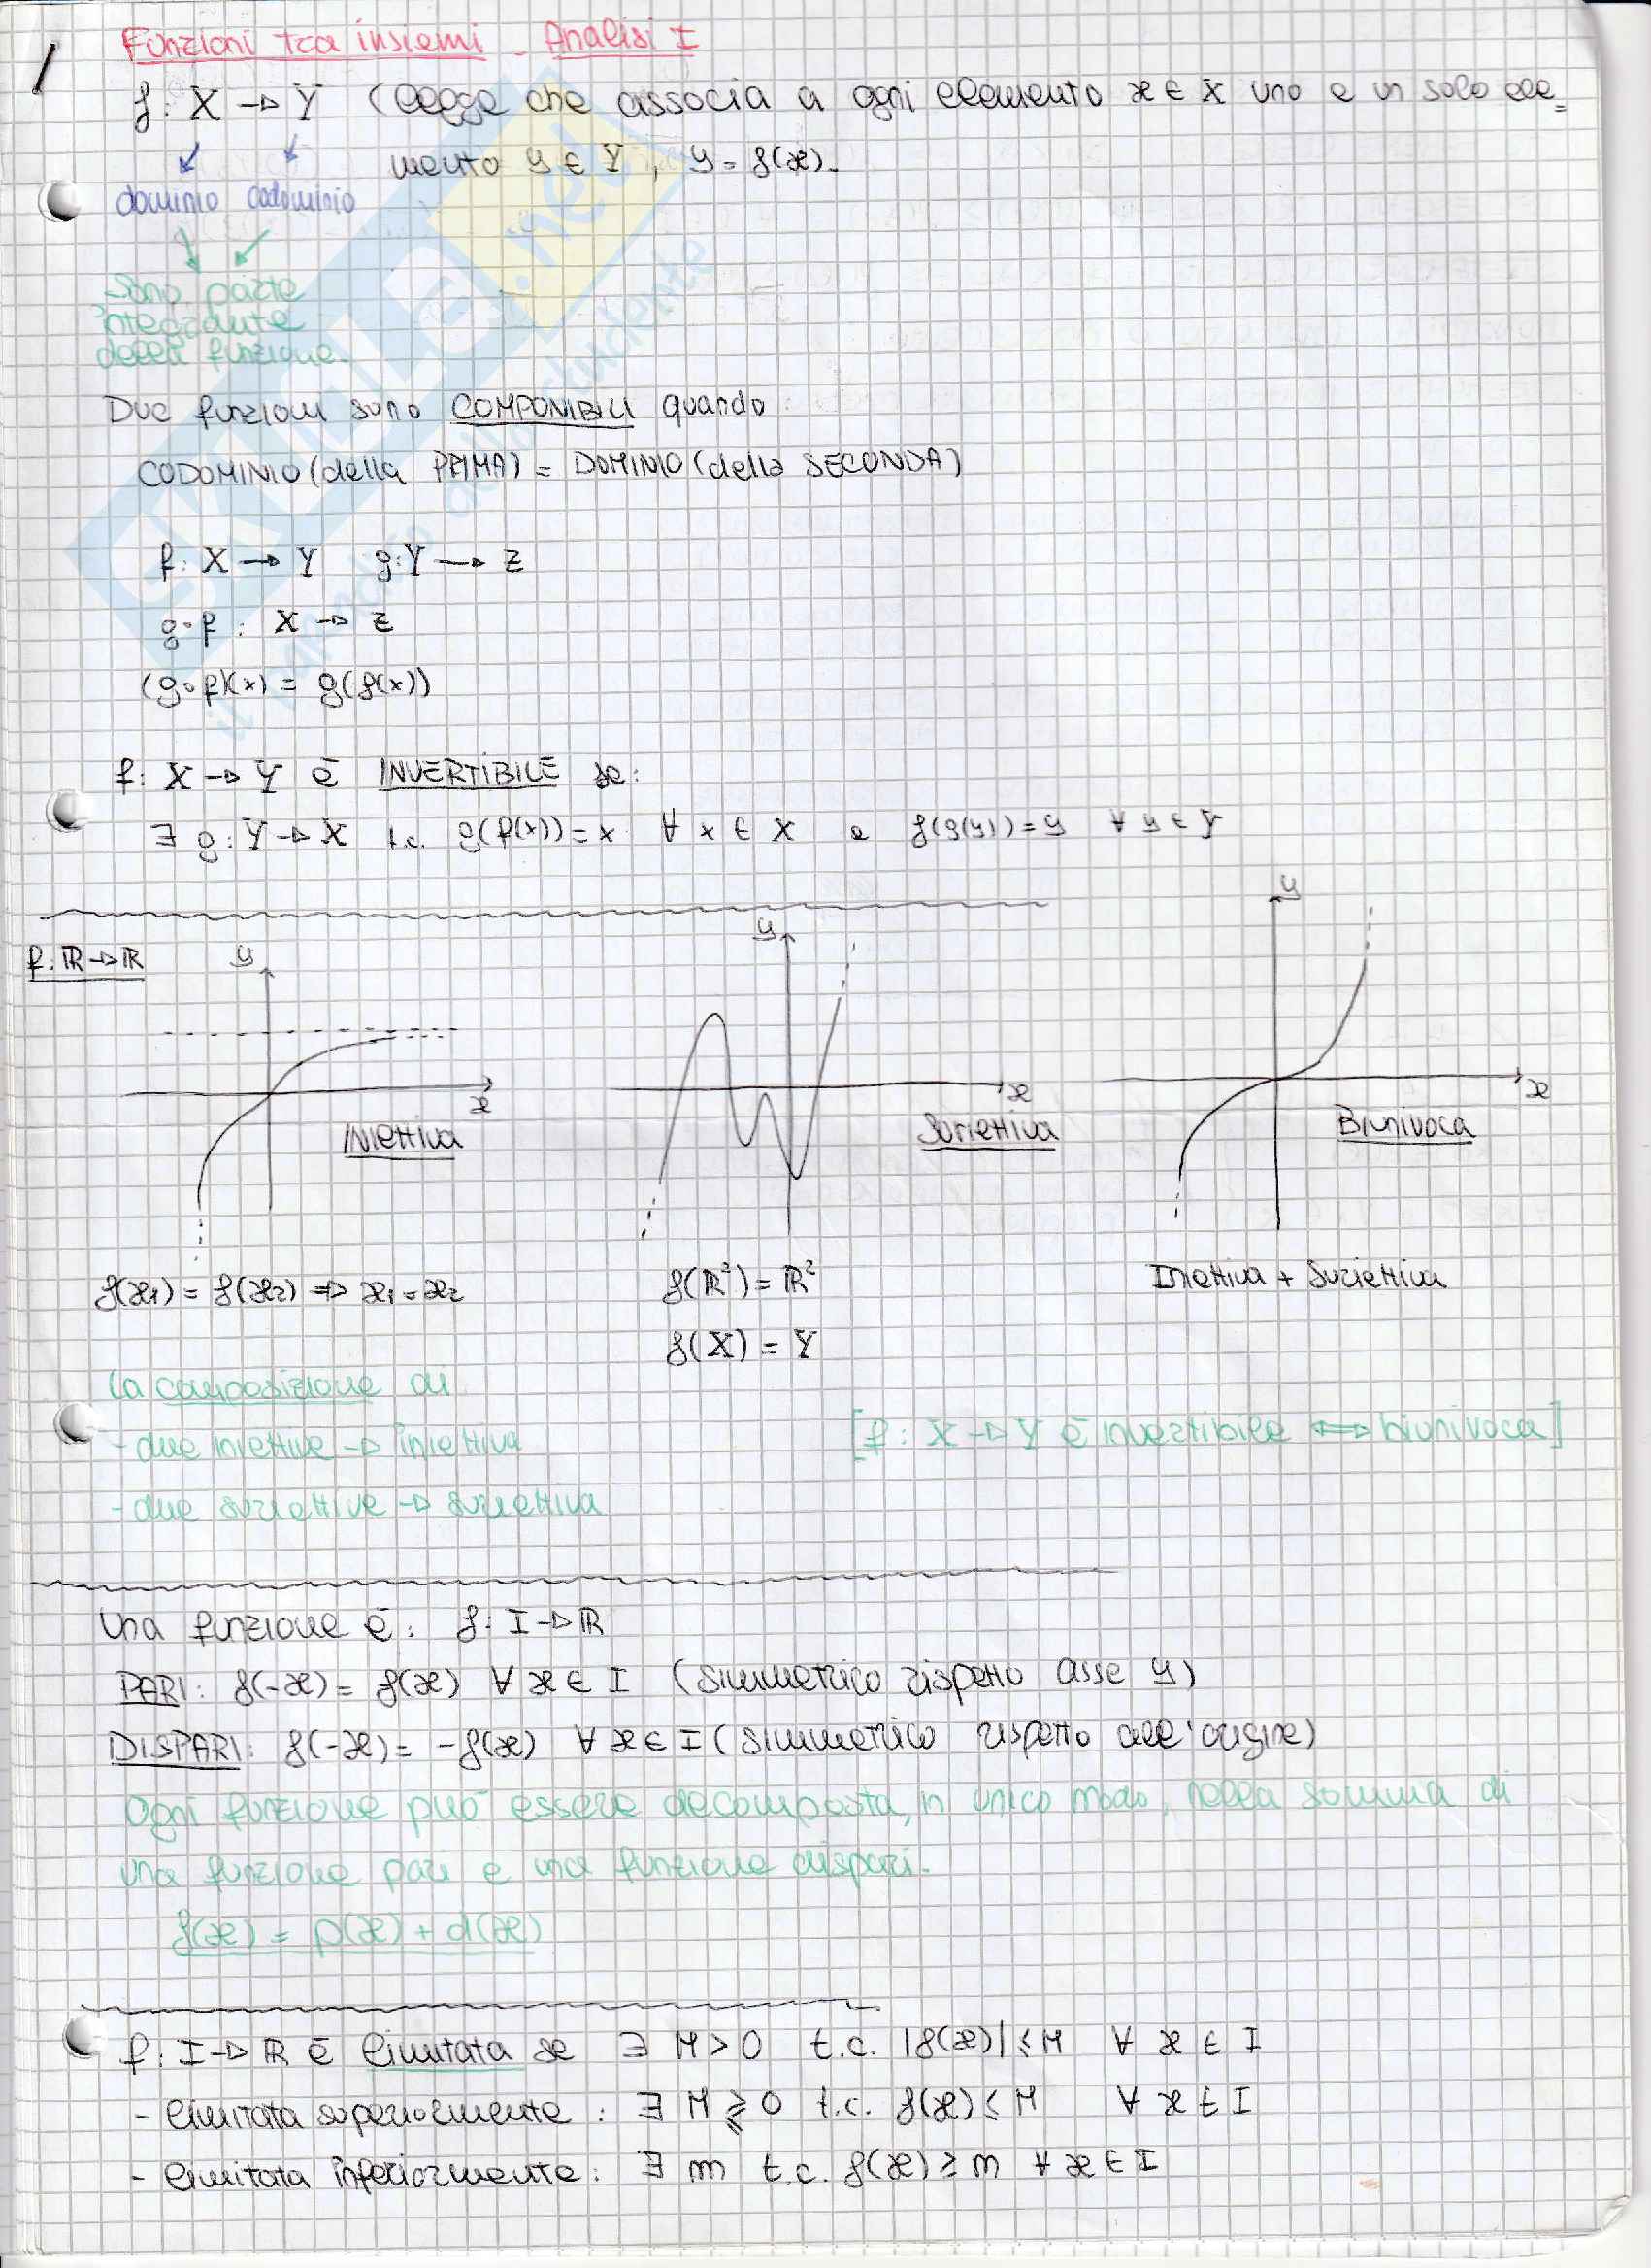 1
Funzioni tra insiemi - Analisi I
f: X → Y (legge che associa a ogni elemento x ∈ X uno e un solo ele=
mento y ∈ Y, y = f(x).
dominio codominio
Sono parte
integrante
della funzione.
Due funzioni sono COMPONIBILI quando
CODOMINIO (della PRIMA) = DOMINIO (della SECONDA)
f: X → Y g: Y → Z
g∘f : X → Z
(g∘f)(x) = g(f(x))
f: X → Y è INVERTIBILE se:
∃ g: Y → X t.c. g(f(x)) = x ∀ x ∈ X e f(g(y)) = y ∀ y ∈ Y
f: ℝ → ℝ
y y y
x x x
Iniettiva Suriettiva Biunivoca
f(x₁) = f(x₂) ⇒ x₁ = x₂ f(ℝ²) = ℝ² Iniettiva + Suriettiva
f(X) = Y
La composizione di
- due iniettive → iniettiva [f: X → Y è invertibile ⟺ biunivoca]
- due suriettive → suriettiva
Una funzione è: f: I → ℝ
PARI: f(-x) = f(x) ∀ x ∈ I (simmetrico rispetto asse y)
DISPARI: f(-x) = -f(x) ∀ x ∈ I (simmetrico rispetto all'origine)
Ogni funzione può essere decomposta, in unico modo, nella somma di
una funzione pari e una funzione dispari.
f(x) = p(x) + d(x)
f: I → ℝ è limitata se ∃ M > 0 t.c. |f(x)| ≤ M ∀ x ∈ I
- limitata superiormente: ∃ M ⩾ 0 t.c. f(x) ≤ M ∀ x ∈ I
- limitata inferiormente: ∃ m t.c. f(x) ≥ m ∀ x ∈ I
SKUOLA.net